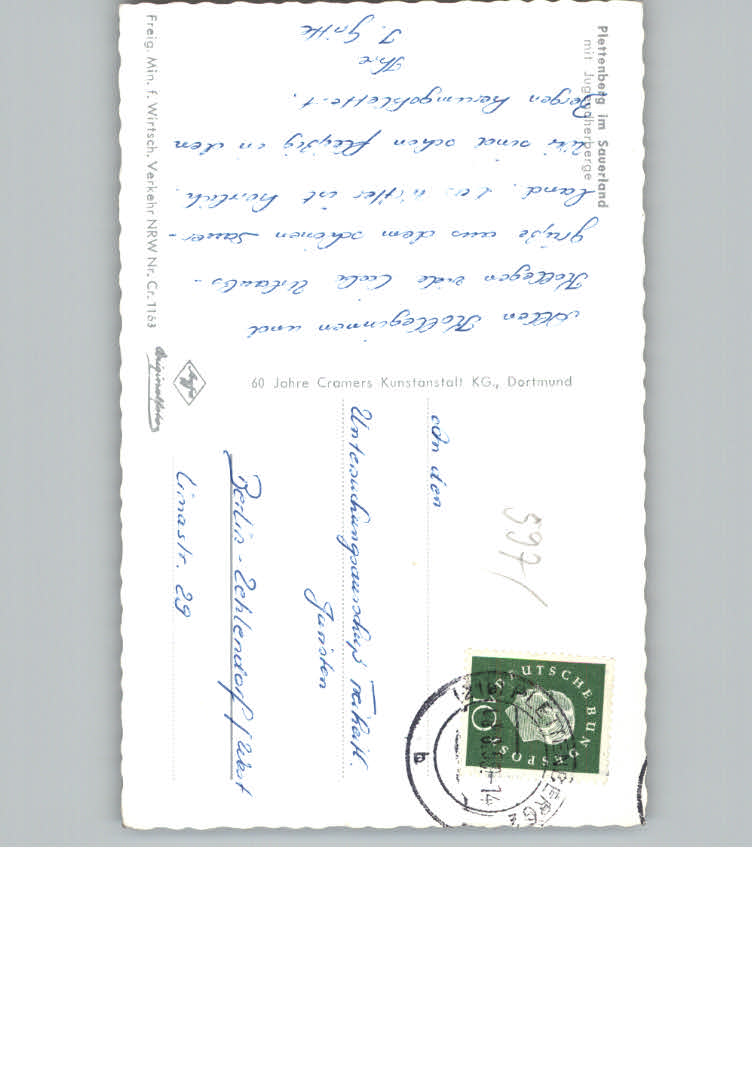 Plettenberg im Sauerland
mit Jugendherberge
Allen Kolleginnen und
Kollegen viele liebe Urlaubs-
grüße aus dem schönen Sauer-
land. Das Wetter ist herrlich.
Wir sind schon fleißig in den
Bergen herumgeklettert.
Ihre
J.
Freig. Min. f. Wirtsch. Verkehr NRW Nr. Cr. 1163
60 Jahre Cramers Kunstanstalt KG., Dortmund
Agfa
Originalfoto
597/
DEUTSCHE BUNDESPOST
10
PLETTENBERG
-14
b
An den
Untersuchungsausschuß Freiheitl.
Juristen
Berlin-Zehlendorf/West
Limastr. 29